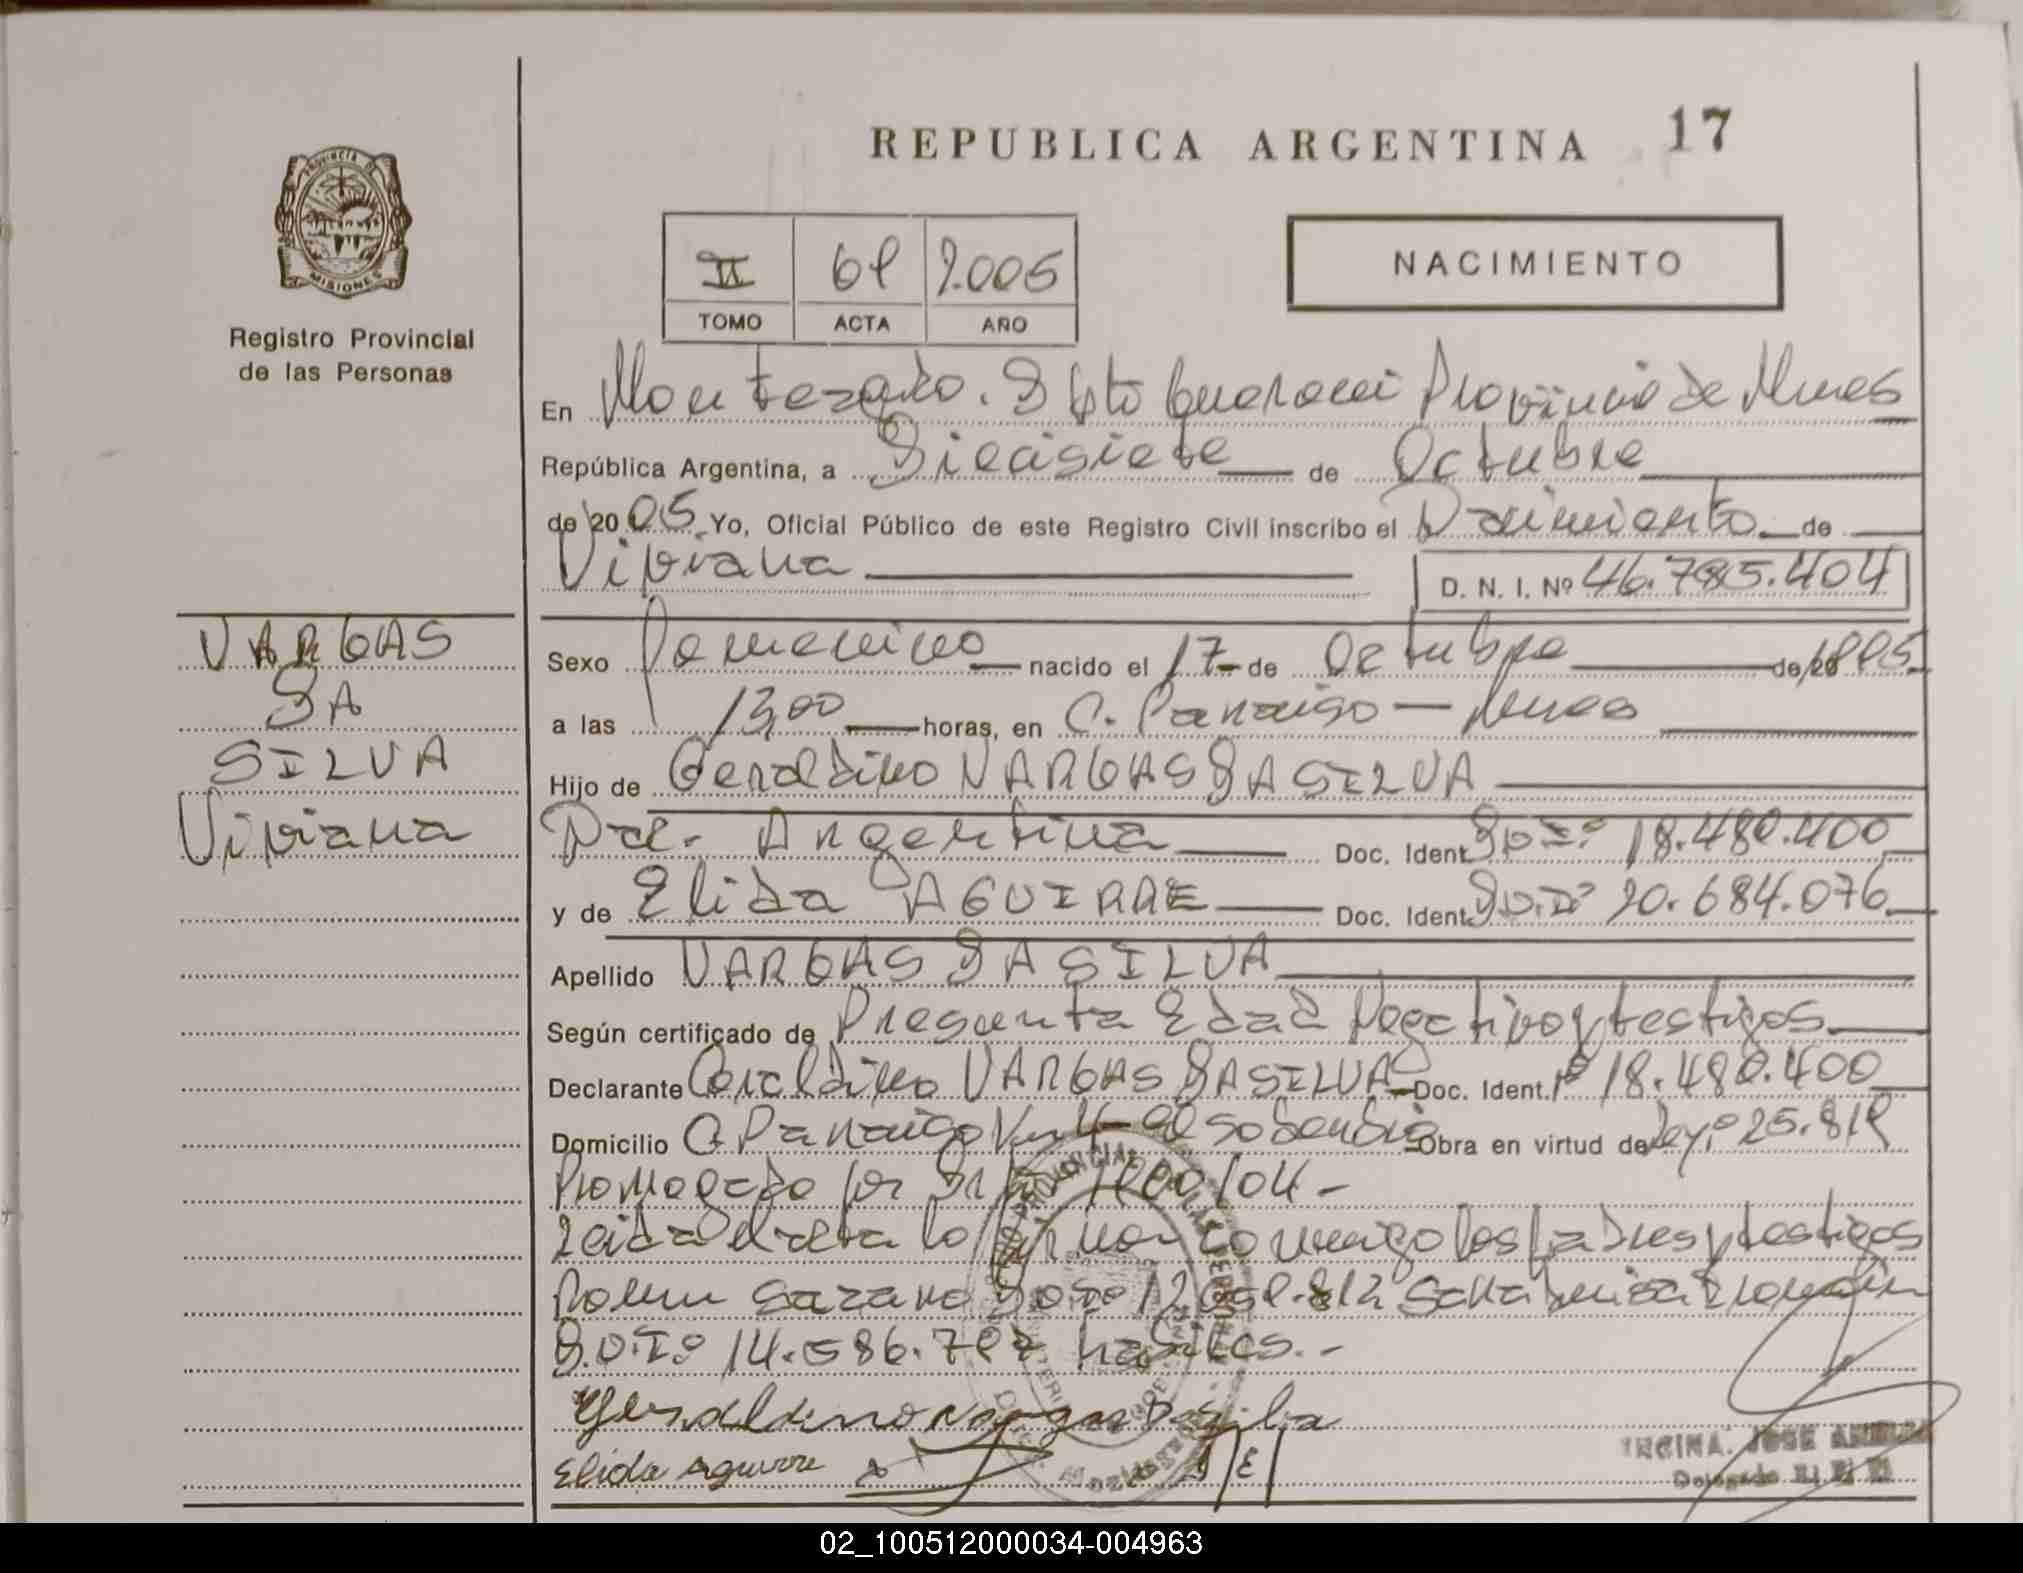 REPUBLICA ARGENTINA 17
PROVINCIA DE
MISIONES
Registro Provincial
de las Personas
II 61 2.005
TOMO ACTA AÑO
NACIMIENTO
En Monteagudo. Dpto Guarani Provincia de Mnes
República Argentina, a Diecisiete de Octubre
de 2005 Yo, Oficial Público de este Registro Civil inscribo el Nacimiento de
Viviana
D. N. I. Nº 46.785.404
VARGAS
DA
SILVA
Viviana
Sexo Femenino nacido el 17 de Octubre de
a las 13,00 horas, en C. Paraiso - Mnes
Hijo de Geraldino VARGAS DA SILVA
Nac. Argentina Doc. Ident. D.N.Iº 18.480.400
y de Elida AGUIRRE Doc. Ident. D.N.Iº 20.684.076
Apellido VARGAS DA SILVA
Según certificado de Presunta Edad Negativo y testigos
Declarante Geraldino VARGAS DA SILVA Doc. Ident. Nº 18.480.400
Domicilio C. Paraiso Obra en virtud de Ley Nº 25.819
por
Leida el acta lo firman conmigo los padres y testigos
D.N.Iº 14.586. habiles.-
Geraldino Vargas Da silba
Elida Aguirre
JOSE
Delegado
02_100512000034-004963